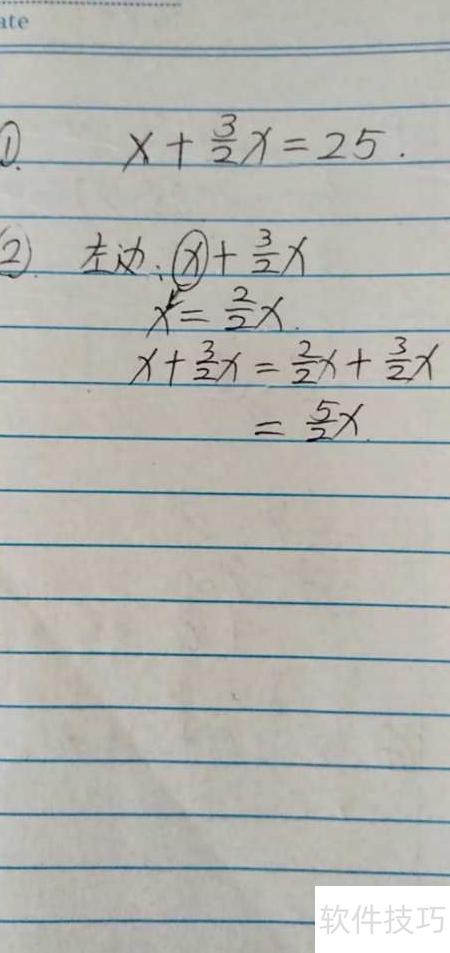 ate
① x + 3/2 x = 25.
② 左边: x + 3/2 x
x = 2/2 x.
x + 3/2 x = 2/2 x + 3/2 x
= 5/2 x.
软件技巧